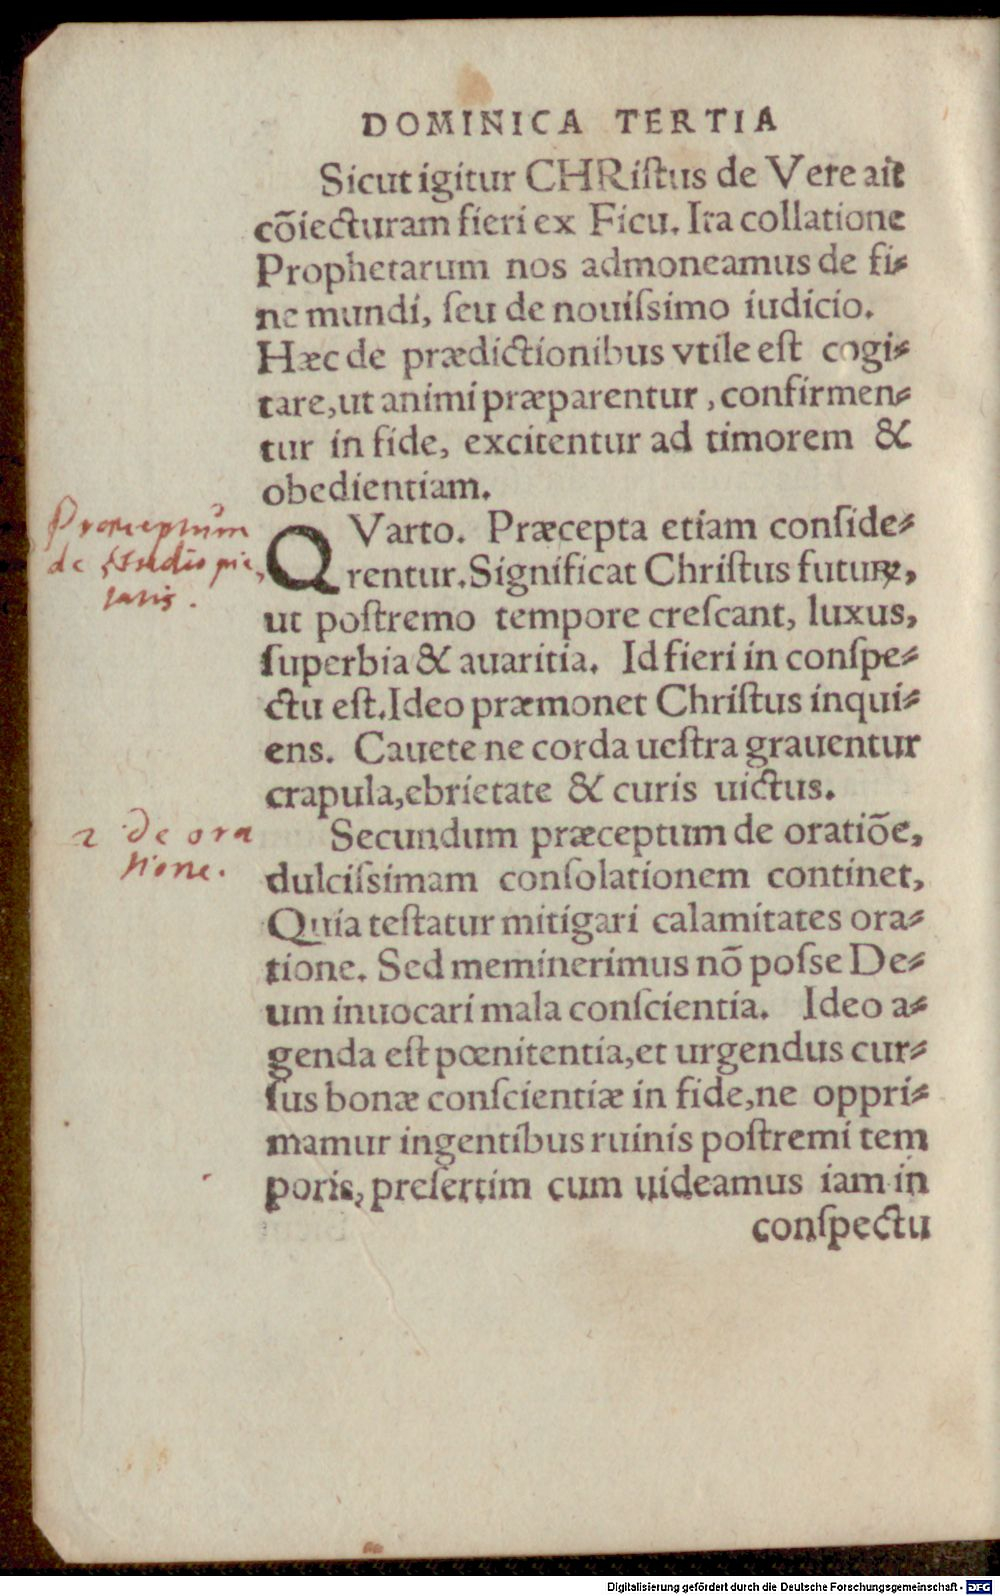 DOMINICA TERTIA
Sicut igitur CHRiſtus de Vere ait
cõiecturam fieri ex Ficu. Ita collatione
Prophetarum nos admoneamus de fi⸗
ne mundi, ſeu de nouiſsimo iudicio.
Hæc de prædictionibus vtile eſt cogi⸗
tare, ut animi præparentur, confirmen⸗
tur in fide, excitentur ad timorem &
obedientiam.
QVarto. Præcepta etiam conſide⸗
rentur. Significat Chriſtus futuꝝ,
ut poſtremo tempore creſcant, luxus,
ſuperbia & auaritia. Id fieri in conſpe⸗
ctu eſt. Ideo præmonet Chriſtus inqui⸗
ens. Cauete ne corda ueſtra grauentur
crapula, ebrietate & curis uictus.
Secundum præceptum de oratiõe,
dulciſsimam conſolationem continet,
Quia teſtatur mitigari calamitates ora⸗
tione. Sed meminerimus nõ poſse De⸗
um inuocari mala conſcientia. Ideo a⸗
genda eſt pœnitentia, et urgendus cur⸗
ſus bonæ conſcientiæ in fide, ne oppri⸗
mamur ingentibus ruinis poſtremi tem
poris, preſertim cum uideamus iam in
conſpectu
Præceptum
de studio pie
tatis.
2 de ora
tione.
Digitalisierung gefördert durch die Deutsche Forschungsgemeinschaft - DFG